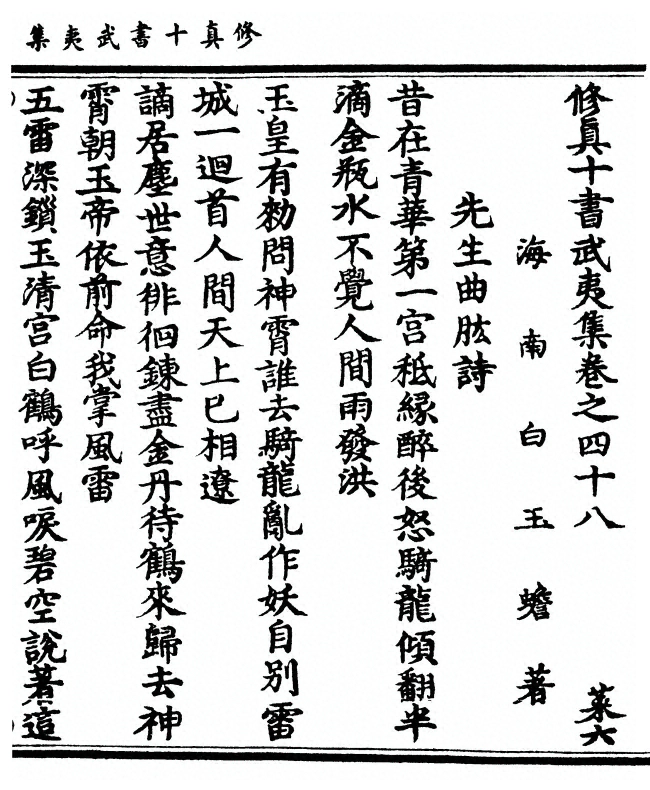 修真十書武夷集
修真十書武夷集卷之四十八 菜六
海南白玉蟾著
先生曲肱詩
昔在青華第一宮秪緣醉後怒騎龍傾翻半
滴金瓶水不覺人間雨發洪
玉皇有勑問神霄誰去騎龍亂作妖自別雷
城一迴首人間天上已相遼
謫居塵世意徘徊鍊盡金丹待鶴來歸去神
霄朝玉帝依前命我掌風雷
五雷深鎖玉清宮白鶴呼風唳碧空說著這